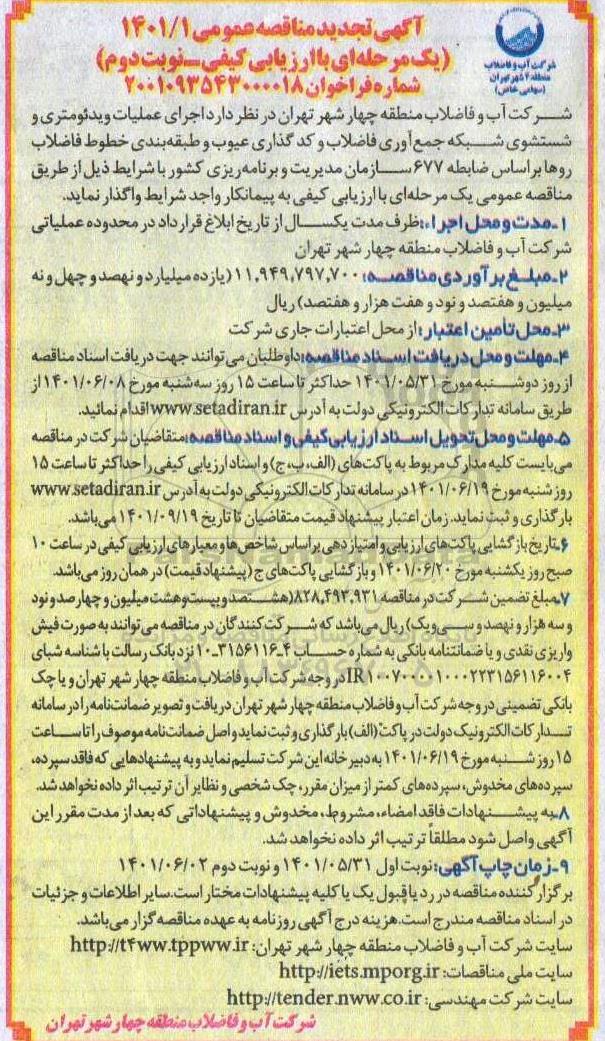 شرکت آب و فاضلاب
منطقه ۴ شهر تهران
(سهامی خاص)
آگهی تجدید مناقصه عمومی ۱۴۰۱/۱
(یک مرحله‌ای با ارزیابی کیفی ـ نوبت دوم)
شماره فراخوان ۲۰۰۱۰۹۳۵۴۳۰۰۰۰۱۸
شرکت آب و فاضلاب منطقه چهار شهر تهران در نظر دارد اجرای عملیات ویدئومتری و
شستشوی شبکه جمع‌آوری فاضلاب و کد گذاری عیوب و طبقه‌بندی خطوط فاضلاب
روها بر اساس ضابطه ۶۷۷ سازمان مدیریت و برنامه‌ریزی کشور با شرایط ذیل از طریق
مناقصه عمومی یک مرحله‌ای با ارزیابی کیفی به پیمانکار واجد شرایط واگذار نماید.
۱ـ مدت و محل اجراء: ظرف مدت یکسال از تاریخ ابلاغ قرار داد در محدوده عملیاتی
شرکت آب و فاضلاب منطقه چهار شهر تهران
۲ـ مبلغ برآوردی مناقصه: ۱۱,۹۴۹,۷۹۷,۷۰۰ (یازده میلیارد و نهصد و چهل و نه
میلیون و هفتصد و نود و هفت هزار و هفتصد) ریال
۳ـ محل تأمین اعتبار: از محل اعتبارات جاری شرکت
۴ـ مهلت و محل دریافت اسناد مناقصه: داوطلبان می‌توانند جهت دریافت اسناد مناقصه
از روز دوشنبه مورخ ۱۴۰۱/۰۵/۳۱ حداکثر تا ساعت ۱۵ روز سه‌شنبه مورخ ۱۴۰۱/۰۶/۰۸ از
طریق سامانه تدارکات الکترونیکی دولت به آدرس www.setadiran.ir اقدام نمائید.
۵ـ مهلت و محل تحویل اسناد ارزیابی کیفی و اسناد مناقصه: متقاضیان شرکت در مناقصه
می‌بایست کلیه مدارک مربوط به پاکت‌های (الف، ب، ج) و اسناد ارزیابی کیفی را حداکثر تا ساعت ۱۵
روز شنبه مورخ ۱۴۰۱/۰۶/۱۹ در سامانه تدارکات الکترونیکی دولت به آدرس www.setadiran.ir
بارگذاری و ثبت نماید. زمان اعتبار پیشنهاد قیمت متقاضیان تا تاریخ ۱۴۰۱/۰۹/۱۹ می‌باشد.
۶ـ تاریخ بازگشایی پاکت‌های ارزیابی و امتیازدهی بر اساس شاخص‌ها و معیارهای ارزیابی کیفی در ساعت ۱۰
صبح روز یکشنبه مورخ ۱۴۰۱/۰۶/۲۰ و بازگشایی پاکت‌های ج (پیشنهاد قیمت) در همان روز می‌باشد.
۷ـ مبلغ تضمین شرکت در مناقصه ۸۲۸,۴۹۳,۹۳۱ (هشتصد و بیست و هشت میلیون و چهارصد و نود
و سه هزار و نهصد و سی و یک) ریال می‌باشد که شرکت کنندگان در مناقصه می‌توانند به صورت فیش
واریزی نقدی و یا ضمانتنامه بانکی به شماره حساب ۴ـ۳۱۵۶۱۱۶ـ۱۰ نزد بانک رسالت با شناسه شبای
IR۱۰۰۷۰۰۰۰۱۰۰۰۲۲۳۱۵۶۱۱۶۰۰۴ در وجه شرکت آب و فاضلاب منطقه چهار شهر تهران و یا چک
بانکی تضمینی در وجه شرکت آب و فاضلاب منطقه چهار شهر تهران دریافت و تصویر ضمانت‌نامه را در سامانه
تدارکات الکترونیک دولت در پاکت (الف) بارگذاری و ثبت نماید و اصل ضمانت‌نامه موصوف را تا ساعت
۱۵ روز شنبه مورخ ۱۴۰۱/۰۶/۱۹ به دبیرخانه این شرکت تسلیم نماید و به پیشنهادهایی که فاقد سپرده،
سپرده‌های مخدوش، سپرده‌های کمتر از میزان مقرر، چک شخصی و نظایر آن ترتیب اثر داده نخواهد شد.
۸ـ به پیشنهادات فاقد امضاء، مشروط، مخدوش و پیشنهاداتی که بعد از مدت مقرر این
آگهی واصل شود مطلقاً ترتیب اثر داده نخواهد شد.
۹ـ زمان چاپ آگهی: نوبت اول ۱۴۰۱/۰۵/۳۱ و نوبت دوم ۱۴۰۱/۰۶/۰۲
برگزار کننده مناقصه در رد یا قبول یک یا کلیه پیشنهادات مختار است. سایر اطلاعات و جزئیات
در اسناد مناقصه مندرج است. هزینه درج آگهی روزنامه به عهده مناقصه گزار می‌باشد.
سایت شرکت آب و فاضلاب منطقه چهار شهر تهران: http://t۴ww.tppww.ir
سایت ملی مناقصات: http://iets.mporg.ir
سایت شرکت مهندسی: http://tender.nww.co.ir
شرکت آب و فاضلاب منطقه چهار شهر تهران